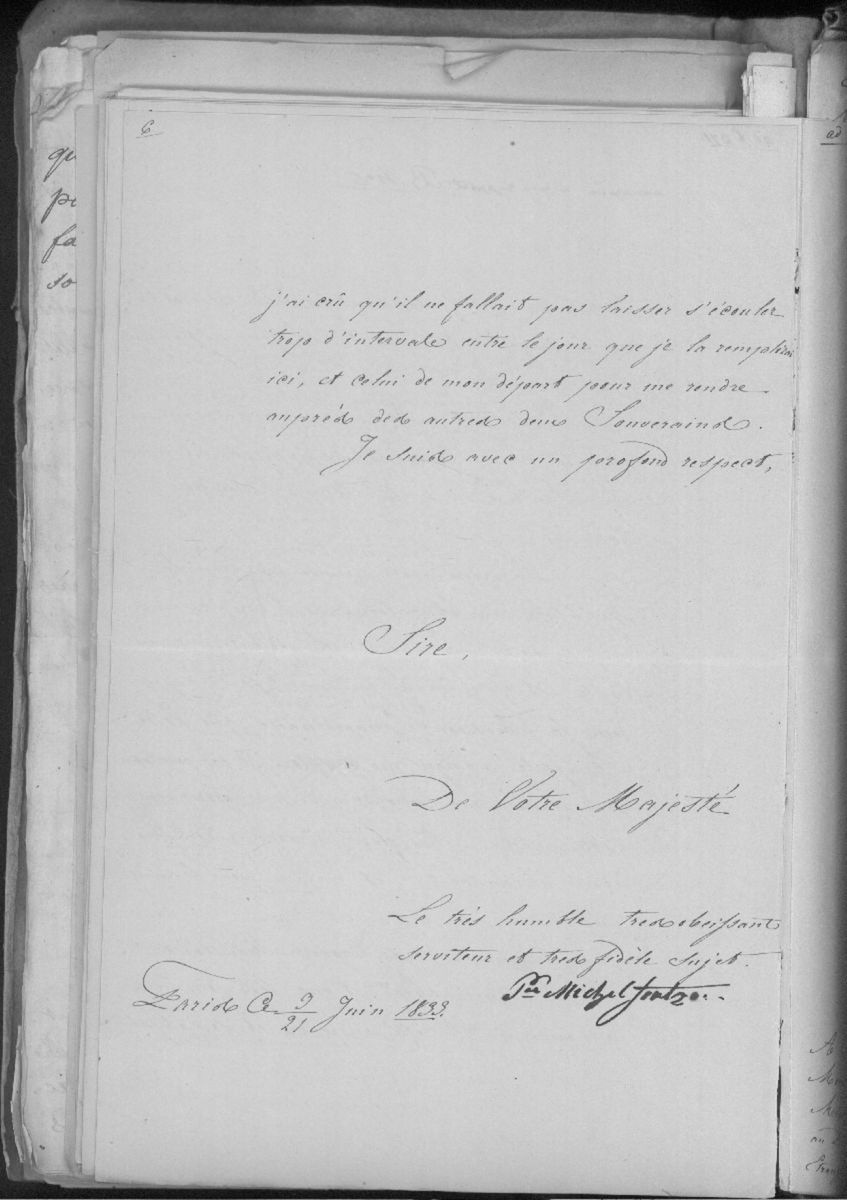 6
qu
pe
fa
so
ad
j'ai crû qu'il ne fallait pas laisser s'écouler
trop d'intervale entre le jour que je la remplirai
ici, et celui de mon départ pour me rendre
auprés des autres deux Souverains.
Je suis avec un profond respect,
Sire,
De Votre Majesté
Le trés humble tres obeissant
serviteur et tres fidèle sujet.
Pce Michel Soutzo.
Paris Ce 9/21 Juin 1833.